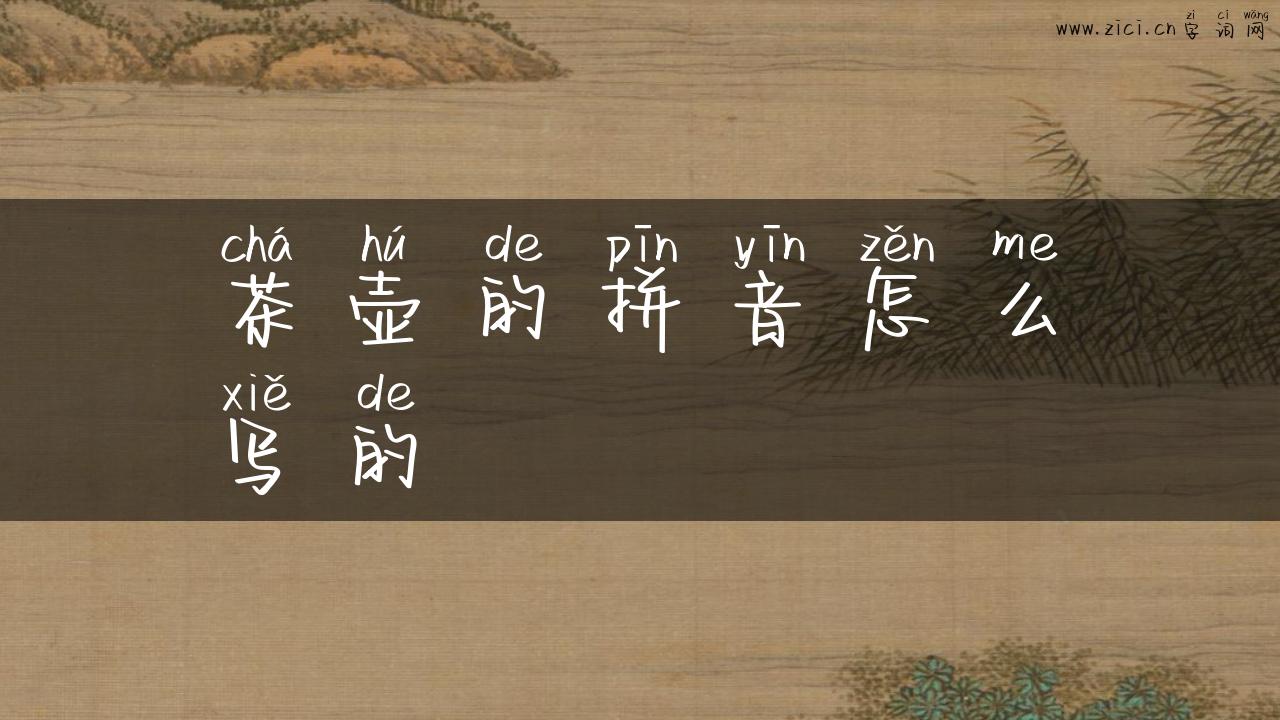 zì cí wǎng
www.zici.cn 字词网
chá hú de pīn yīn zěn me
茶壶的拼音怎么
xiě de
写的